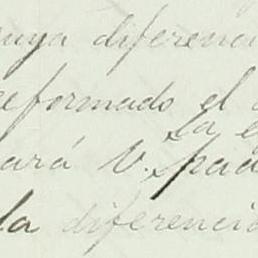 cuya diferenci
reformado el
La e
ará V. pad
la diferencia